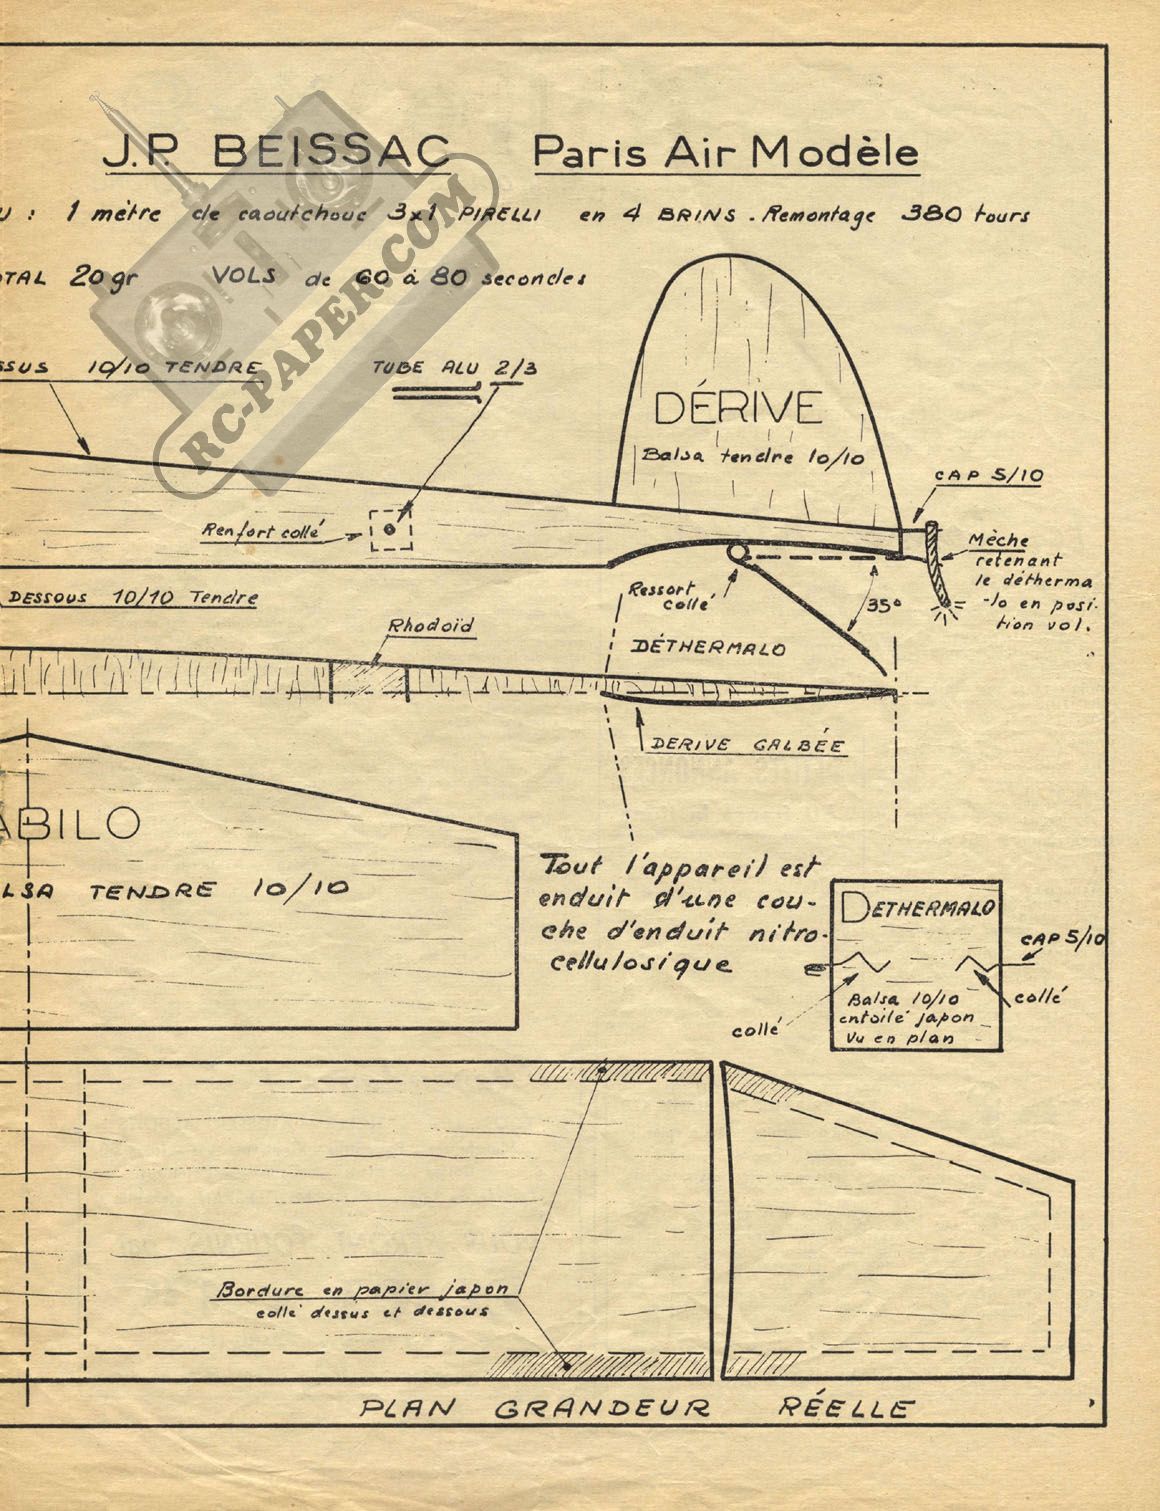 J.P. BEISSAC Paris Air Modèle
: 1 mètre de caoutchouc 3x1 PIRELLI en 4 BRINS. Remontage 380 tours
OTAL 20gr VOLS de 60 à 80 secondes
SSUS 10/10 TENDRE
TUBE ALU 2/3
RC-PAPER.COM
DÉRIVE
Balsa tendre 10/10
CAP 5/10
Renfort collé
Mèche
retenant
le détherma
-lo en posi-
tion vol.
Ressort
collé
35°
DESSOUS 10/10 Tendre
Rhodoïd
DÉTHERMALO
DERIVE GALBÉE
ABILO
LSA TENDRE 10/10
Tout l'appareil est
enduit d'une cou-
che d'enduit nitro-
cellulosique
DETHERMALO
CAP 5/10
Balsa 10/10
entoilé japon
Vu en plan
collé
collé
Bordure en papier japon
collé dessus et dessous
PLAN GRANDEUR RÉELLE